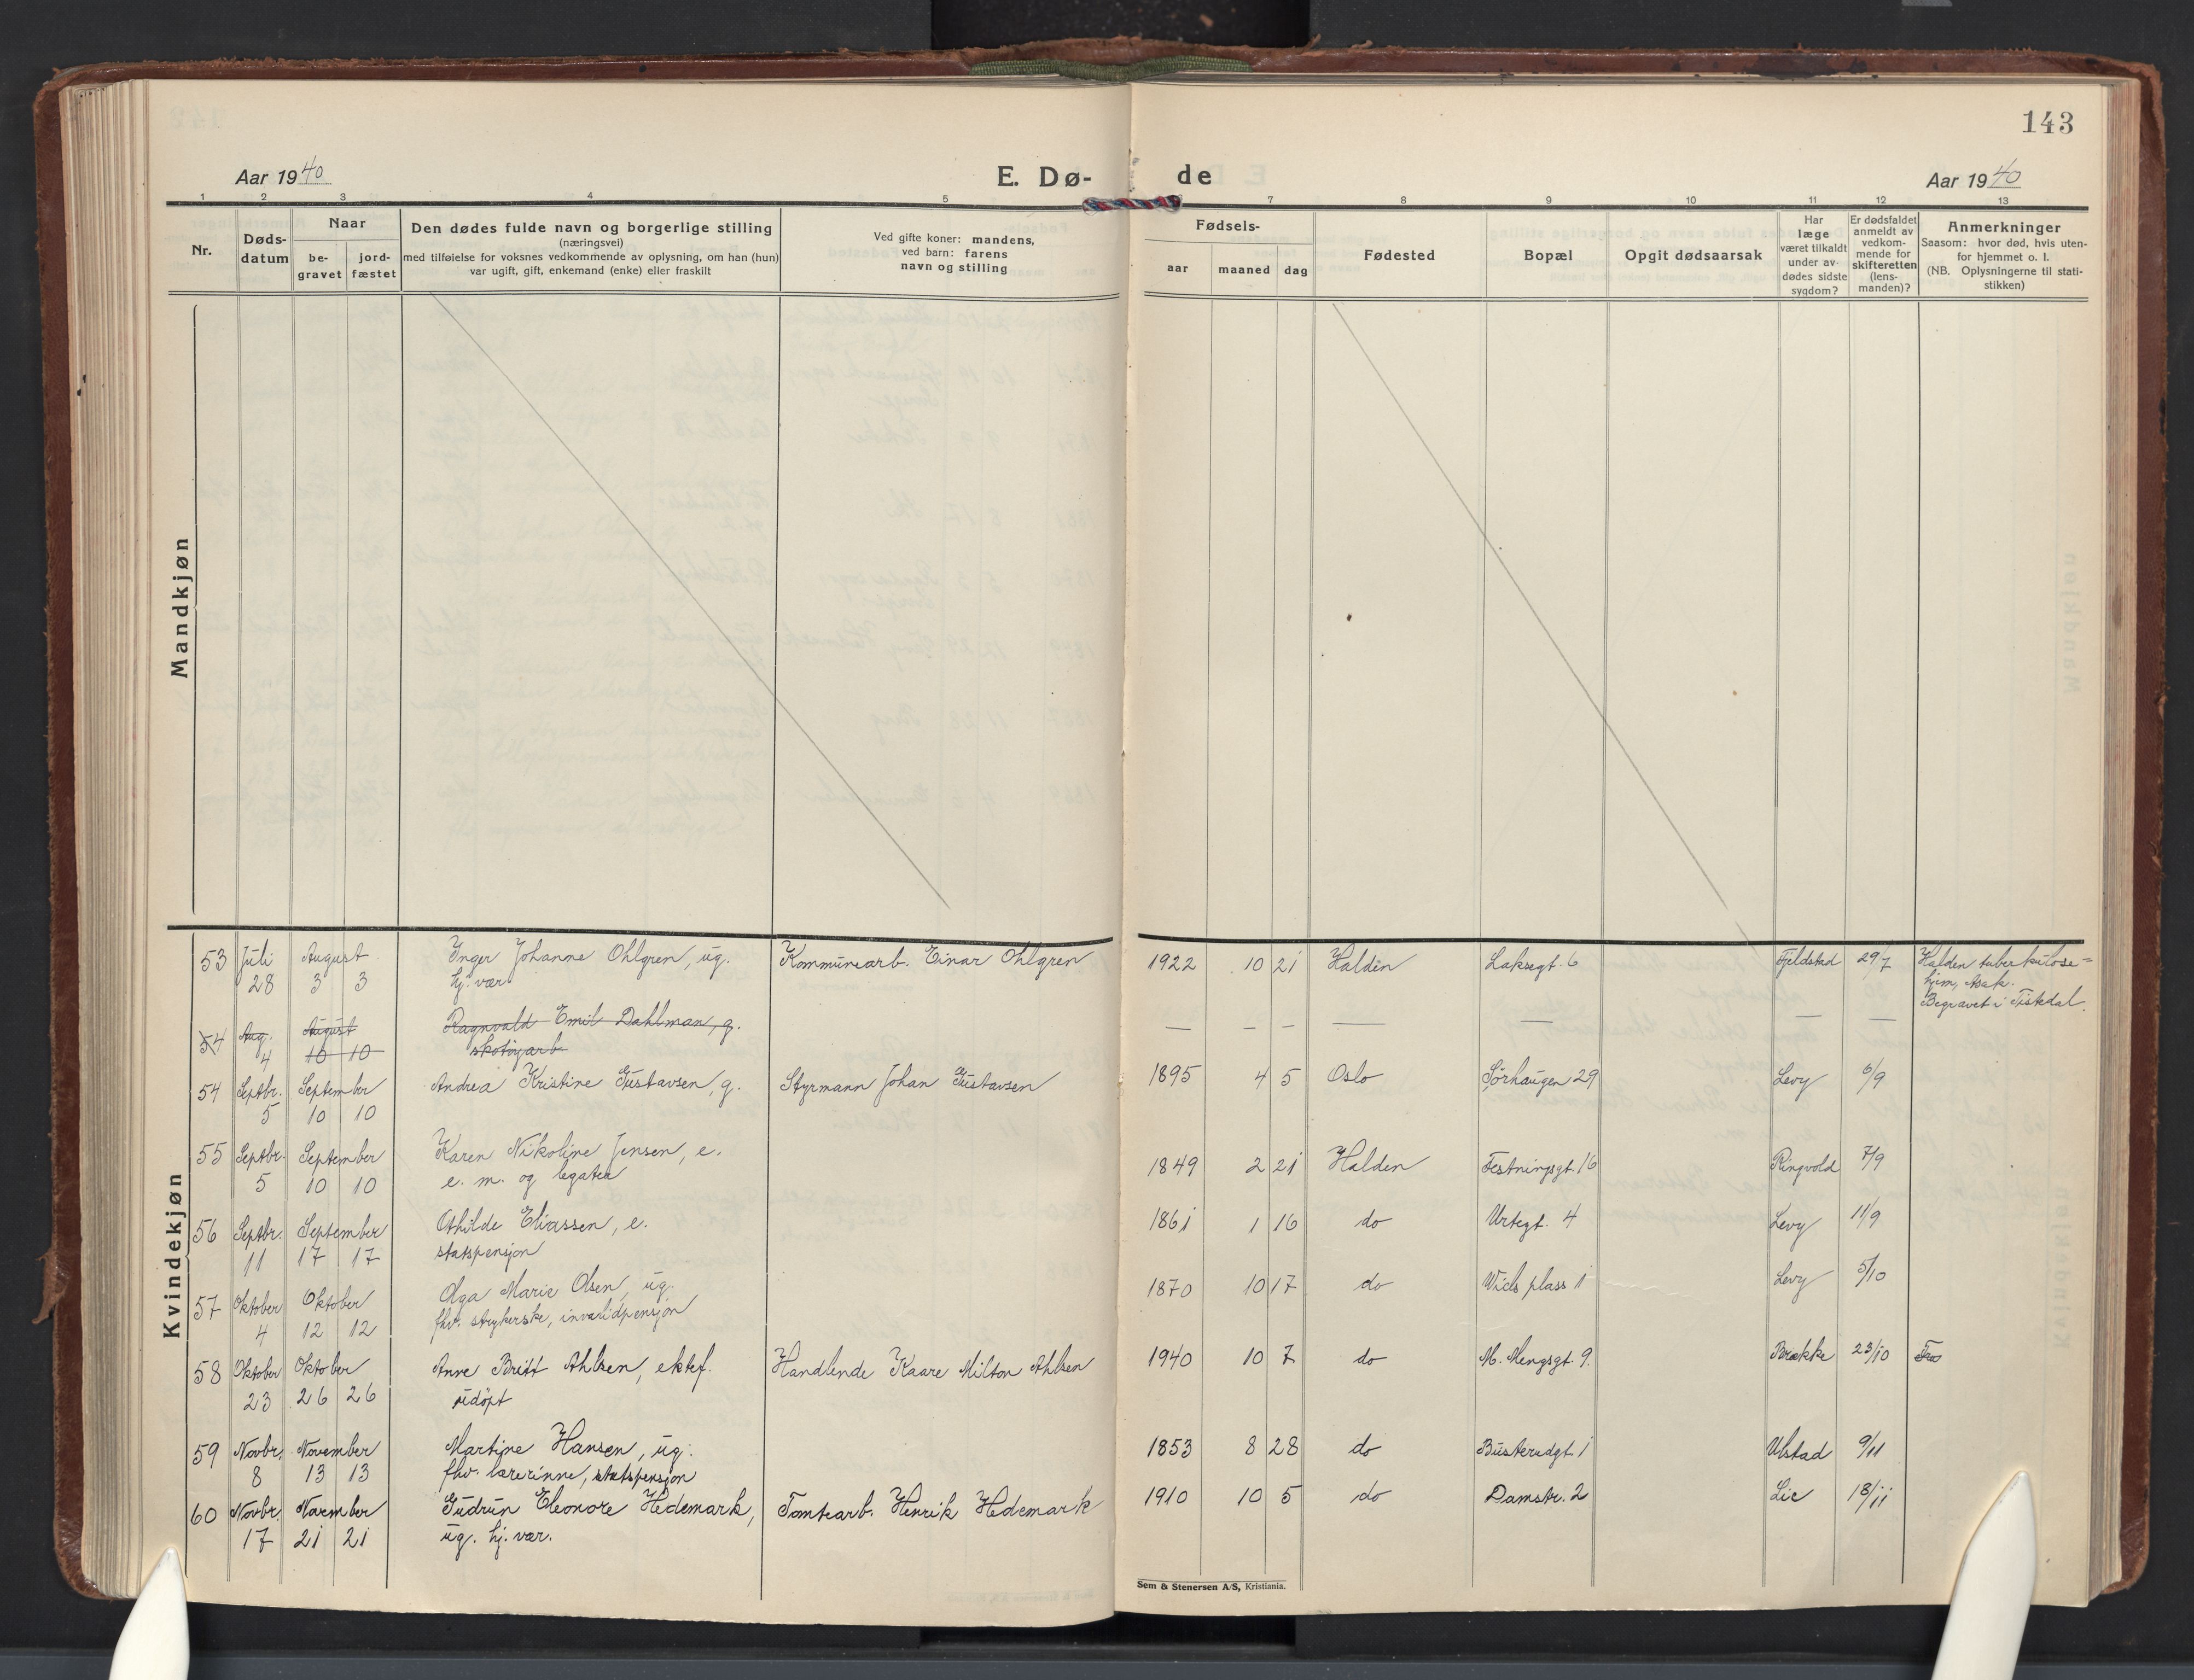 143
Aar 1940
E. Dø-
de
Aar 1940
1 2 3 4 5 7 8 9 10 11 12 13
Nr.
Døds-
datum
Naar
be-
gravet
jord-
fæstet
Den dødes fulde navn og borgerlige stilling
(næringsvei)
med tilføielse for voksnes vedkommende av oplysning, om han (hun)
var ugift, gift, enkemand (enke) eller fraskilt
Ved gifte koner: mandens,
ved barn: farens
navn og stilling
Fødsels-
aar maaned dag
Fødested
Bopæl
Opgit dødsaarsak
Har
læge
været tilkaldt
under av-
dødes sidste
sygdom?
Er dødsfaldet
anmeldt av
vedkom-
mende for
skifteretten
(lens-
manden)?
Anmerkninger
Saasom: hvor død, hvis uten-
for hjemmet o. l.
(NB. Oplysningerne til stati-
stikken)
Mandkjøn
Kvindekjøn
53 Juli August Inger Johanne Ohlgren, ug. Kommunearb. Einar Ohlgren 1922 10 21 Halden Laksegt. 6 Fjeldstad 29/7 Halden tuberkulose=
28 3 3 hj. vær hjem, Asak.
Begravet i Tistedal.
54 Aug. August Ragnvald Emil Dahlman, g. — — — — — — —
4 10 10 skotøyarb.
54 Septbr. September Andrea Kristine Gustavsen, g. Styrmann Johan Gustavsen 1895 4 5 Oslo Sørhaugen 29 Levy 6/9
5 10 10
55 Septbr. September Karen Nikoline Jensen, e. 1849 2 21 Halden Festningsgt. 16 Ringvold 7/9
5 10 10 e. m. og legater
56 Septbr. September Othilde Eliassen, e. 1861 1 16 do Urtegt. 4 Levy 11/9
11 17 17 statspensjon
57 Oktober Oktober Olga Marie Olsen, ug. 1870 10 17 do Wiels plass 1 Levy 5/10
4 12 12 fhv. strykerske, invalidpensjon
58 Oktober Oktober Anne Britt Ahlsen, ektef. Handlende Kaare Milton Ahlsen 1940 10 7 do M. Mengsgt. 9. Brække 23/10
23 26 26 udöpt
59 Novbr. November Martine Hansen, ug. 1853 8 28 do Busterudgt. 1 Ulstad 9/11
8 13 13 fhv. lærerinne, statspensjon
60 Novbr. November Gudrun Eleonore Hedemark, Tomtearb. Henrik Hedemark 1910 10 5 do Damstr. 2 Lie 18/11
17 21 21 ug. hj. vær.
Sem & Stenersen A/S, Kristiania.